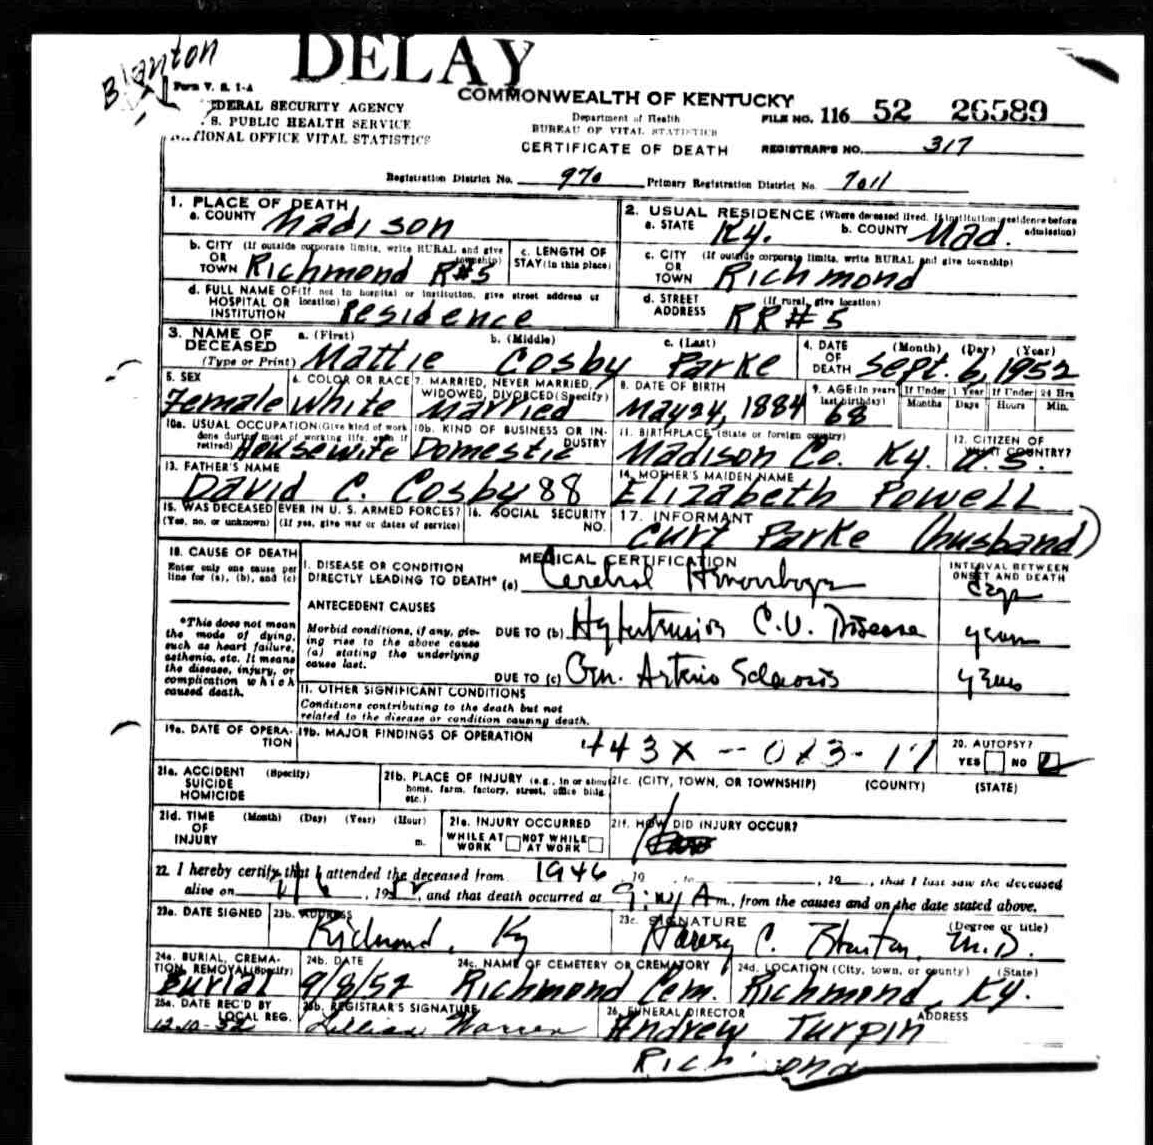 Blanton
DELAY
Form V. S. 1-A
DERAL SECURITY AGENCY
S. PUBLIC HEALTH SERVICE
TIONAL OFFICE VITAL STATISTICS
COMMONWEALTH OF KENTUCKY
Department of Health
BUREAU OF VITAL STATISTICS
CERTIFICATE OF DEATH
FILE NO. 116 52 26589
REGISTRAR'S NO. 317
Registration District No. 970 Primary Registration District No. 7011
1. PLACE OF DEATH
a. COUNTY Madison
2. USUAL RESIDENCE (Where deceased lived. If institution: residence before admission)
a. STATE Ky. b. COUNTY Mad.
b. CITY (If outside corporate limits, write RURAL and give township)
OR
TOWN Richmond R#5
c. LENGTH OF
STAY (in this place)
c. CITY (If outside corporate limits, write RURAL and give township)
OR
TOWN Richmond
d. FULL NAME OF (If not in hospital or institution, give street address or location)
HOSPITAL OR
INSTITUTION Residence
d. STREET (If rural, give location)
ADDRESS RR#5
3. NAME OF DECEASED
(Type or Print)
a. (First) b. (Middle) c. (Last)
Mattie Cosby Parke
4. DATE OF DEATH (Month) (Day) (Year)
Sept. 6, 1952
5. SEX
Female
6. COLOR OR RACE
White
7. MARRIED, NEVER MARRIED,
WIDOWED, DIVORCED (Specify)
Married
8. DATE OF BIRTH
May 24, 1884
9. AGE (In years last birthday)
68
If Under 1 Year If Under 24 Hrs
Months Days Hours Min.
10a. USUAL OCCUPATION (Give kind of work done during most of working life, even if retired)
Housewife
10b. KIND OF BUSINESS OR INDUSTRY
Domestic
11. BIRTHPLACE (State or foreign country)
Madison Co. Ky.
12. CITIZEN OF WHAT COUNTRY?
U.S.
13. FATHER'S NAME
David C. Cosby 88
14. MOTHER'S MAIDEN NAME
Elizabeth Powell
15. WAS DECEASED EVER IN U. S. ARMED FORCES?
(Yes, no, or unknown) (If yes, give war or dates of service)
16. SOCIAL SECURITY NO.
17. INFORMANT
Curt Parke (husband)
18. CAUSE OF DEATH
Enter only one cause per
line for (a), (b), and (c)
*This does not mean
the mode of dying,
such as heart failure,
asthenia, etc. It means
the disease, injury, or
complication which
caused death.
MEDICAL CERTIFICATION
INTERVAL BETWEEN
ONSET AND DEATH
I. DISEASE OR CONDITION
DIRECTLY LEADING TO DEATH* (a) Cerebral Hemorrhage
ANTECEDENT CAUSES
Morbid conditions, if any, giv-
ing rise to the above cause
(a) stating the underlying
cause last.
DUE TO (b) Hypertension C.V. Disease years
DUE TO (c) Gen. Arterio Sclerosis years
II. OTHER SIGNIFICANT CONDITIONS
Conditions contributing to the death but not
related to the disease or condition causing death.
19a. DATE OF OPERATION
19b. MAJOR FINDINGS OF OPERATION
443X
20. AUTOPSY?
YES NO
21a. ACCIDENT (Specify)
SUICIDE
HOMICIDE
21b. PLACE OF INJURY (e.g., in or about
home, farm, factory, street, office bldg.
etc.)
21c. (CITY, TOWN, OR TOWNSHIP) (COUNTY) (STATE)
21d. TIME (Month) (Day) (Year) (Hour)
OF
INJURY m.
21e. INJURY OCCURRED
WHILE AT WORK NOT WHILE AT WORK
21f. HOW DID INJURY OCCUR?
22. I hereby certify that I attended the deceased from 1946, 19 to , 19 , that I last saw the deceased
alive on , 19 , and that death occurred at m., from the causes and on the date stated above.
23a. DATE SIGNED
23b. ADDRESS
Richmond, Ky
23c. SIGNATURE (Degree or title)
Harvey C. Blanton, M.D.
24a. BURIAL, CREMATION, REMOVAL (Specify)
Burial
24b. DATE
9/8/52
24c. NAME OF CEMETERY OR CREMATORY
Richmond Cem.
24d. LOCATION (City, town, or county) (State)
Richmond, Ky.
25a. DATE REC'D BY LOCAL REG.
12-10-52
25b. REGISTRAR'S SIGNATURE
Lillian Warren
26. FUNERAL DIRECTOR ADDRESS
Andrew Turpin
Richmond